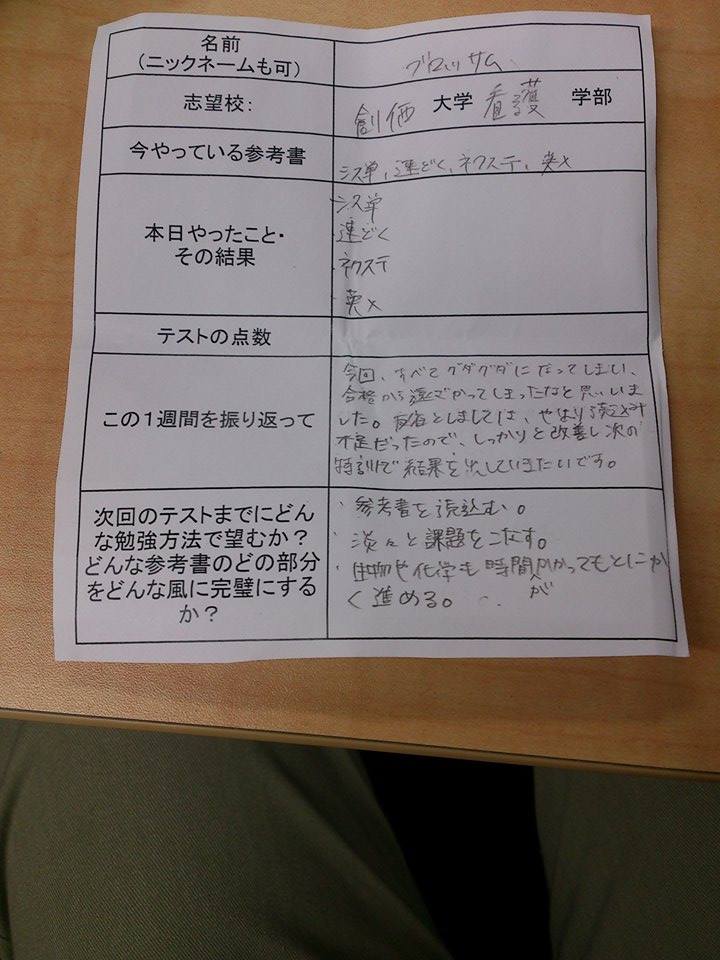 名前
(ニックネームも可)
ブロッサム
志望校:
創価 大学 看護 学部
今やっている参考書
シス単、速どく、ネクステ、英メ
本日やったこと・
その結果
・シス単
・速どく
・ネクステ
・英メ
テストの点数
この1週間を振り返って
今回、すべてグダグダになってしまい、
合格から遠ざかってしまったなと思いま
した。反省としましては、やはり読込み
不足だったので、しっかりと改善し次の
特訓で結果を出していきたいです。
次回のテストまでにどん
な勉強方法で望むか?
どんな参考書のどの部分
をどんな風に完璧にする
か?
・参考書を読込む。
・淡々と課題をこなす。
・生物や化学も時間がかかってもとにか
く進める。